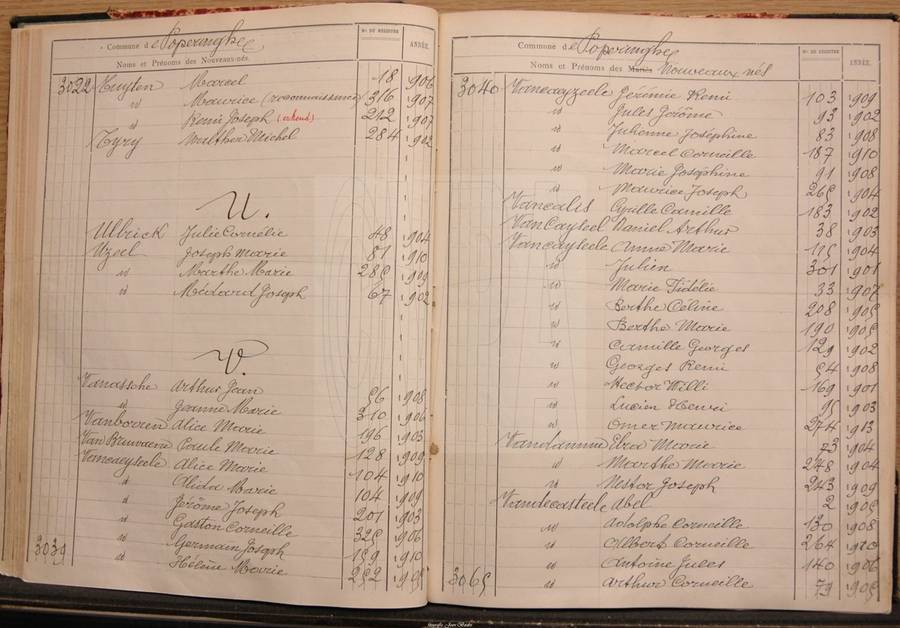 Commune de Poperinghe
Noms et Prénoms des Nouveaux-nés.
Nº DU REGISTRE
ANNÉE.
3022 Tuyten Marcel 18 1906
id Maurice (reconnaissance) 316 1907
id Remi Joseph (erkend) 212 1907
Tyry Michel 284 1902
U.
Ulbrick Julie Cornélie 48 1904
Uzeel Joseph Marie 81 1910
id Marthe Marie 285 1909
id Médard Joseph 67 1902
V.
Vanassche Arthur Jean 56 1908
id Jeanne Marie 310 1906
Vanborren Alice Marie 196 1903
Van Bruwaene Paule Marie 128 1909
Vancaeyseele Alice Marie 104 1910
id Alida Marie 104 1909
id Jérôme Joseph 201 1903
id Gaston Corneille 325 1906
id Germain Joseph 159 1910
3039 id Hélène Marie 252
Commune de Poperinghe
Noms et Prénoms des Mariés Nouveaux nés
Nº DU REGISTRE
ANNÉE.
3040 Vancayzeele Jérémie Remi 103 1909
id Jules Jérôme 93 1902
id Julienne Joséphine 83 1908
id Marcel Corneille 187 1910
id Marie Joséphine 91 1908
id Maurice Joseph 265 1904
Vancalis Cyrille Camille 183 1902
VanCayseel Daniel Arthur 38 1903
Vancayseele Anna Marie 115 1904
id Julien 301 1901
id Marie Fidélie 33 1907
id Berthe Céline 208 1905
id Berthe Marie 190 1905
id Camille Georges 129 1902
id Georges Remi 54 1908
id Hector Willi 169 1901
id Lucien Henri 95 1903
id Omer Maurice 274 1913
Vandamme Elza Marie 73 1904
id Marthe Marie 248 1904
id Nestor Joseph 243 1909
Vandecasteele Abel 2 1905
id Adolphe Corneille 130 1908
id Albert Corneille 264 1910
id Antoine Jules 140 1906
3065 id Arthur Corneille 79 1905